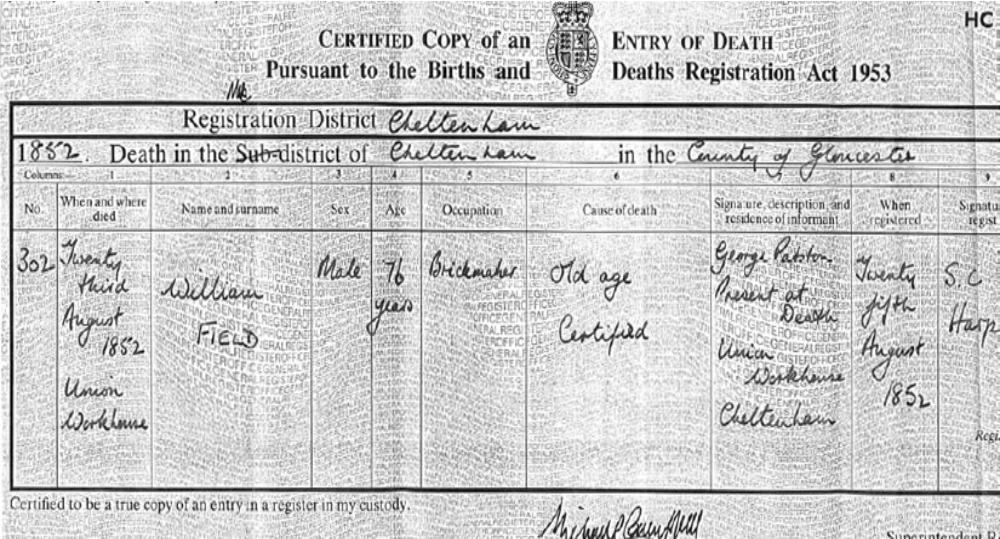 HC
CERTIFIED COPY of an ENTRY OF DEATH
Pursuant to the Births and Deaths Registration Act 1953
Registration District Cheltenham
1852. Death in the Sub-district of Cheltenham in the County of Gloucester
Columns:- 1 2 3 4 5 6 7 8 9
No. When and where died Name and surname Sex Age Occupation Cause of death Signature, description, and residence of informant When registered Signatu regist
302 Twenty third August 1852 Union Workhouse
William FIELD
Male
76 years
Brickmaker
Old age Certified
George Present at Death Union Workhouse Cheltenham
Twenty fifth August 1852
S.C Harp
Regi
Certified to be a true copy of an entry in a register in my custody.
Superintendent R